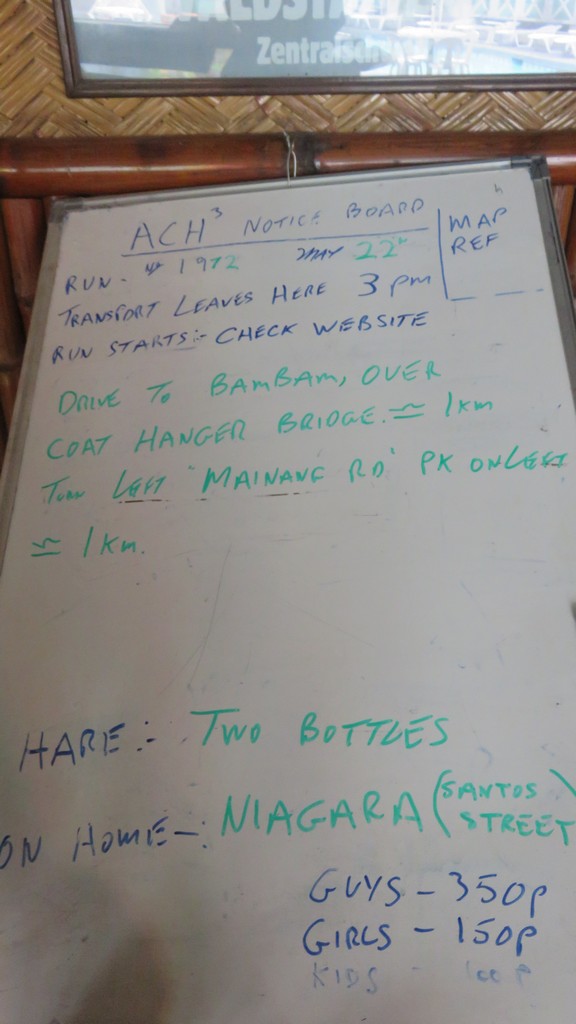 Zentralsch
ACH³ NOTICE BOARD
MAP REF
RUN - 1972 MAY 22
TRANSPORT LEAVES HERE 3 pm
RUN STARTS:- CHECK WEBSITE
DRIVE TO BAMBAM, OVER
COAT HANGER BRIDGE. ≃ 1km
TURN LEFT 'MAINANG RD' PK ON LEFT
≃ 1km.
HARE:- TWO BOTTLES
ON HOME-: NIAGARA (SANTOS STREET)
GUYS - 350p
GIRLS - 150p
KIDS - 100p